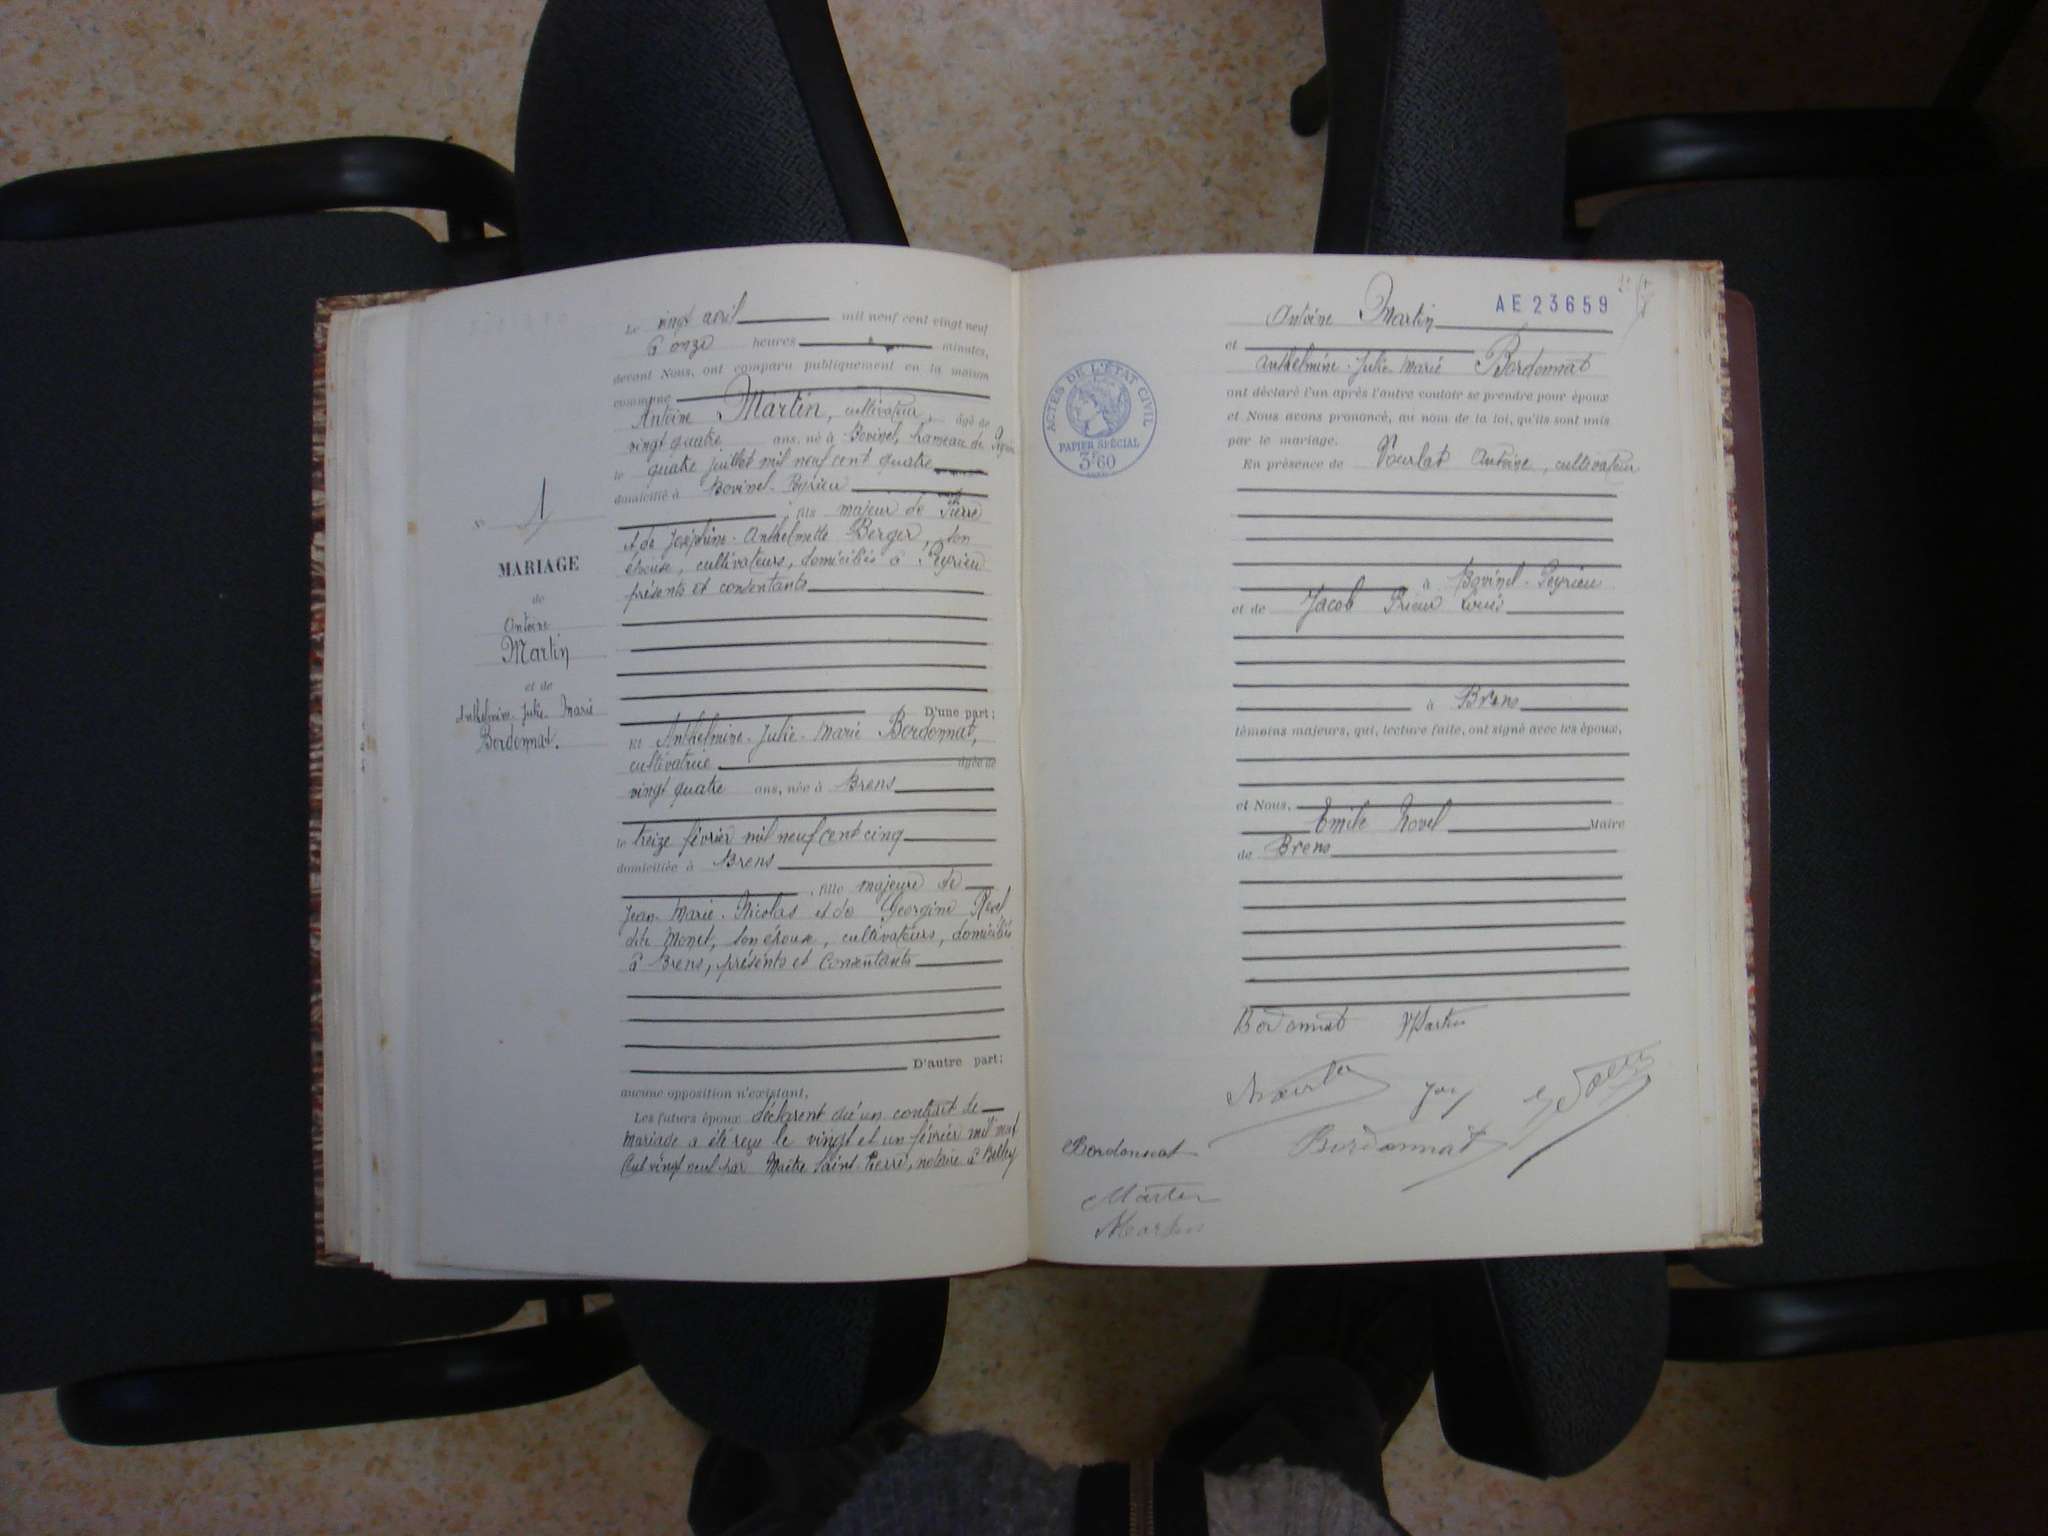 Le vingt avril mil neuf cent vingt neuf
à onze heures minutes,
devant Nous, ont comparu publiquement en la maison
commune
Antoine Martin, cultivateur, âgé de
vingt quatre ans, né à Bovinel, hameau de
le quatre juillet mil neuf cent quatre
domicilié à Bovinel-Peyrieu
, fils majeur de Pierre
et de Joséphine-Anthelmette Berger, son
épouse, cultivateurs, domiciliés à Peyrieu
présents et consentants
N° 1
MARIAGE
de
Antoine
Martin
et de
Anthelmine-Julie-Marie
Bordonnat.
D'une part;
Et Anthelmine-Julie-Marie Bordonnat,
cultivatrice âgée de
vingt quatre ans, née à Brens
le treize février mil neuf cent cinq
domiciliée à Brens
, fille majeure de
Jean-Marie-Nicolas et de Georgine
dite Monet, son épouse, cultivateurs, domiciliés
à Brens, présents et consentants
D'autre part;
aucune opposition n'existant,
Les futurs époux déclarent qu'un contrat de
mariage a été reçu le vingt et un février mil neuf
cent vingt neuf par Maître Saint-Pierre, notaire à Belley
AE23659
Antoine Martin
et
Anthelmine-Julie-Marie Bordonnat
ACTES DE L'ÉTAT CIVIL
PAPIER SPÉCIAL
3F60
ont déclaré l'un après l'autre vouloir se prendre pour époux
et Nous avons prononcé, au nom de la loi, qu'ils sont unis
par le mariage.
En présence de Antoine, cultivateur
à Bovinel-Peyrieu
et de Jacob Prieur
à Brens
témoins majeurs, qui, lecture faite, ont signé avec les époux,
et Nous,
Emile Maire
de Brens
Bordonnat Martin
Bordonnat
Bordonnat
Martin
Martin